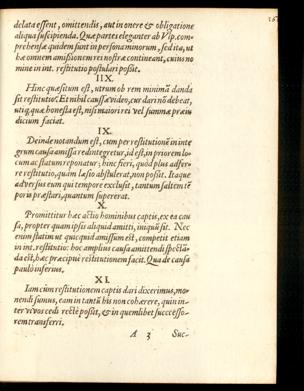 delata essent, omittendis, aut in onere & obligatione
aliqua suscipienda. Quæ partes eleganter ab Vlp. com-
prehensæ quidem sunt in persona minorum, sed ita, ut
hæ omnem amissionem rei nostræ contineant, cuius no
mine in int. restitutio postulari possit.
IIX.
Hinc quæsitum est, utrum ob rem minimã danda
sit restitutio. Et nihil caussæ video, cur dari nõ debeat,
utiq; quæ honesta est, nisi maiori rei vel summæ præiu
dicium faciat.
IX.
Deinde notandum est, cum per restitutionẽ in inte
grum causa amissa redintegretur, id est, in priorem lo-
cum ac statum reponatur; hinc fieri, quòd plus adfer-
re restitutio, quàm læsio abstulerat, non possit. Itaque
adversus eum qui tempore exclusit, tantum saltem tẽ
poris præstari, quantum supererat.
X.
Promittitur hæc actio hominibus captis, ex ea cau
sa, propter quam ipsis aliquid amitti, iniquũ sit. Nec
enim statim ut quicquid amissum est, competit etiam
in int. restitutio: hoc amplius causa amittendi spectã-
da est, hæc præcipuè restitutionem facit. Qua de causa
paulò inferius.
XI.
Iam cùm restitutionem captis dari dixerimus, mo-
nendi sumus, eam in tantũ his non cohærere, quin in-
ter vivos cedi rectè possit, & in quemlibet successo-
rem transferri.
A 3 Suc-